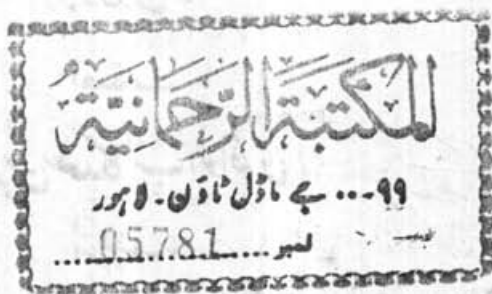 المکتبۃ الرحمانیۃ
۹۹... جے ماڈل ٹاؤن - لاہور
نمبر ....05781....